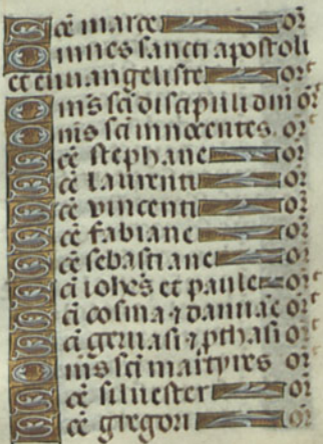 Sce marce or
Omnes sancti apostoli
et euuangeliste or
Oms sci discipuli dni or
Oms sci innocentes or
Sce stephane or
Sce laurenti or
Sce vincenti or
Sce fabiane or
Sce sebastiane or
Sci iohes et paule or
Sci cosma ⁊ damiae or
Sci geruasi ⁊ pthasi or
Oms sci martyres or
Sce siluester or
Sce gregori or